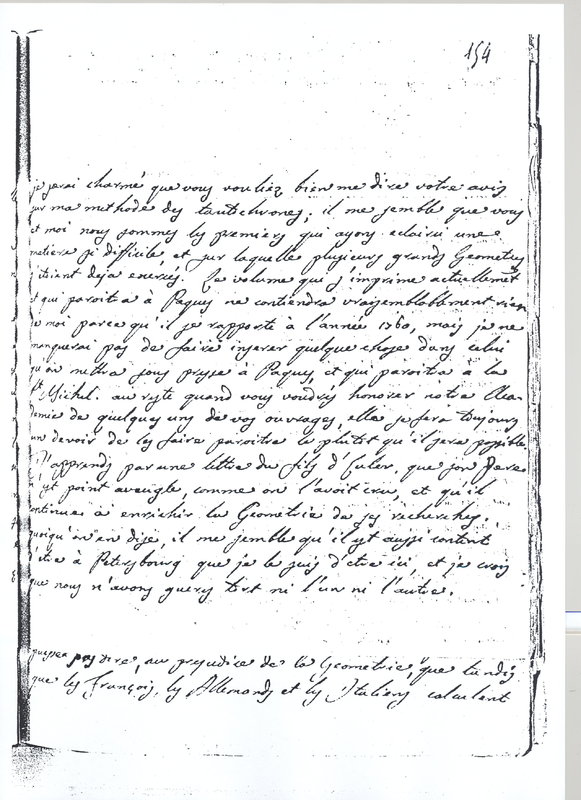 154
je serai charmé que vous vouliez bien me dire votre avis
sur ma methode des tautochrones; il me semble que vous
et moi nous sommes les premiers qui ayons eclairci une
matiere si difficile, et sur laquelle plusieurs grands Geometres
s'etoient deja exercés. Le volume qui s'imprime actuellement
et qui paroitra à Paques ne contiendra vraisemblablement rien
de moi parce qu'il se rapporte à l'année 1760, mais je ne
manquerai pas de faire inserer quelque chose dans celui
qu'on mettra sous presse à Paques et qui paroitra à la
St Michel. au reste quand vous voudrés honorer notre Aca-
demie de quelques uns de vos ouvrages, elle se fera toujours
un devoir de les faire paroitre le plutot qu'il sera possible.
J'apprends par une lettre du fils d'Euler, que son Pere
n'est point aveugle, comme on l'avoit cru, et qu'il
continue à enrichir la Geometrie de ses recherches.
quoiqu'on en dise, il me semble qu'il est aussi content
d'etre à Petersbourg que je le suis d'etre ici, et je crois
que nous n'avons guere tort ni l'un ni l'autre.
pas dire, au prejudice de la Geometrie, que tandis
que les François, les Allemands et les Italiens calculent